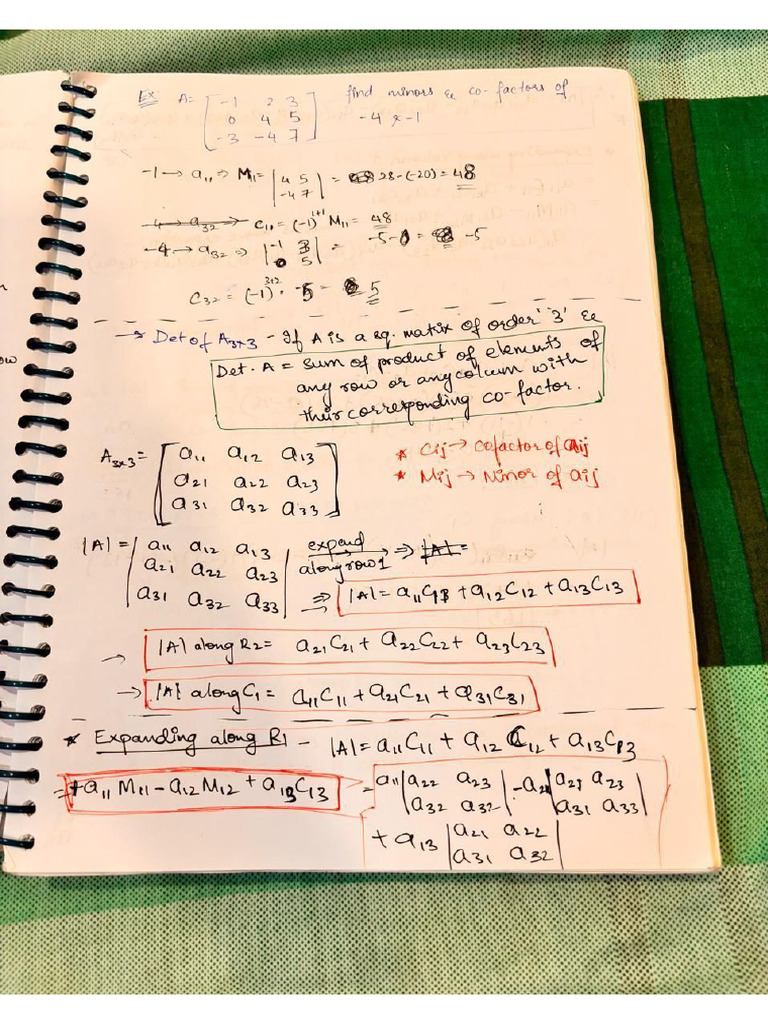 Ex A = [ -1 2 3 find minors & co-factors of
0 4 5 -4 & -1
-3 -4 7 ]
-1 → a11 ⇒ M11 = | 4 5 = 28-(-20) = 48
-4 7 |
C11 = (-1)^1+1 M11 = 48
-4 → a32 ⇒ | -1 3 = -5-0 = -5
0 5 |
C32 = (-1)^3+2 · -5 = 5
→ Det of A3×3 - If A is a sq. matix of order '3' &
Det. A = sum of product of elements of
any row or any column with
their corresponding co-factor.
A3×3 = [ a11 a12 a13
a21 a22 a23
a31 a32 a33 ]
* Cij → Cofactor of aij
* Mij → Minor of aij
|A| = | a11 a12 a13 expand
a21 a22 a23 along row 1 ⇒ |A| =
a31 a32 a33 |
⇒ |A| = a11C11 + a12C12 + a13C13
→ |A| along R2 = a21C21 + a22C22 + a23C23
→ |A| along C1 = a11C11 + a21C21 + a31C31
* Expanding along R1 - |A| = a11C11 + a12C12 + a13C13
= +a11M11 - a12M12 + a13C13
= a11 | a22 a23 - a21 | a21 a23
a32 a32 | a31 a33 |
+ a13 | a21 a22
a31 a32 |